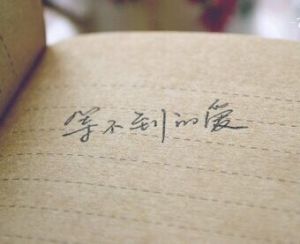 等不到的爱